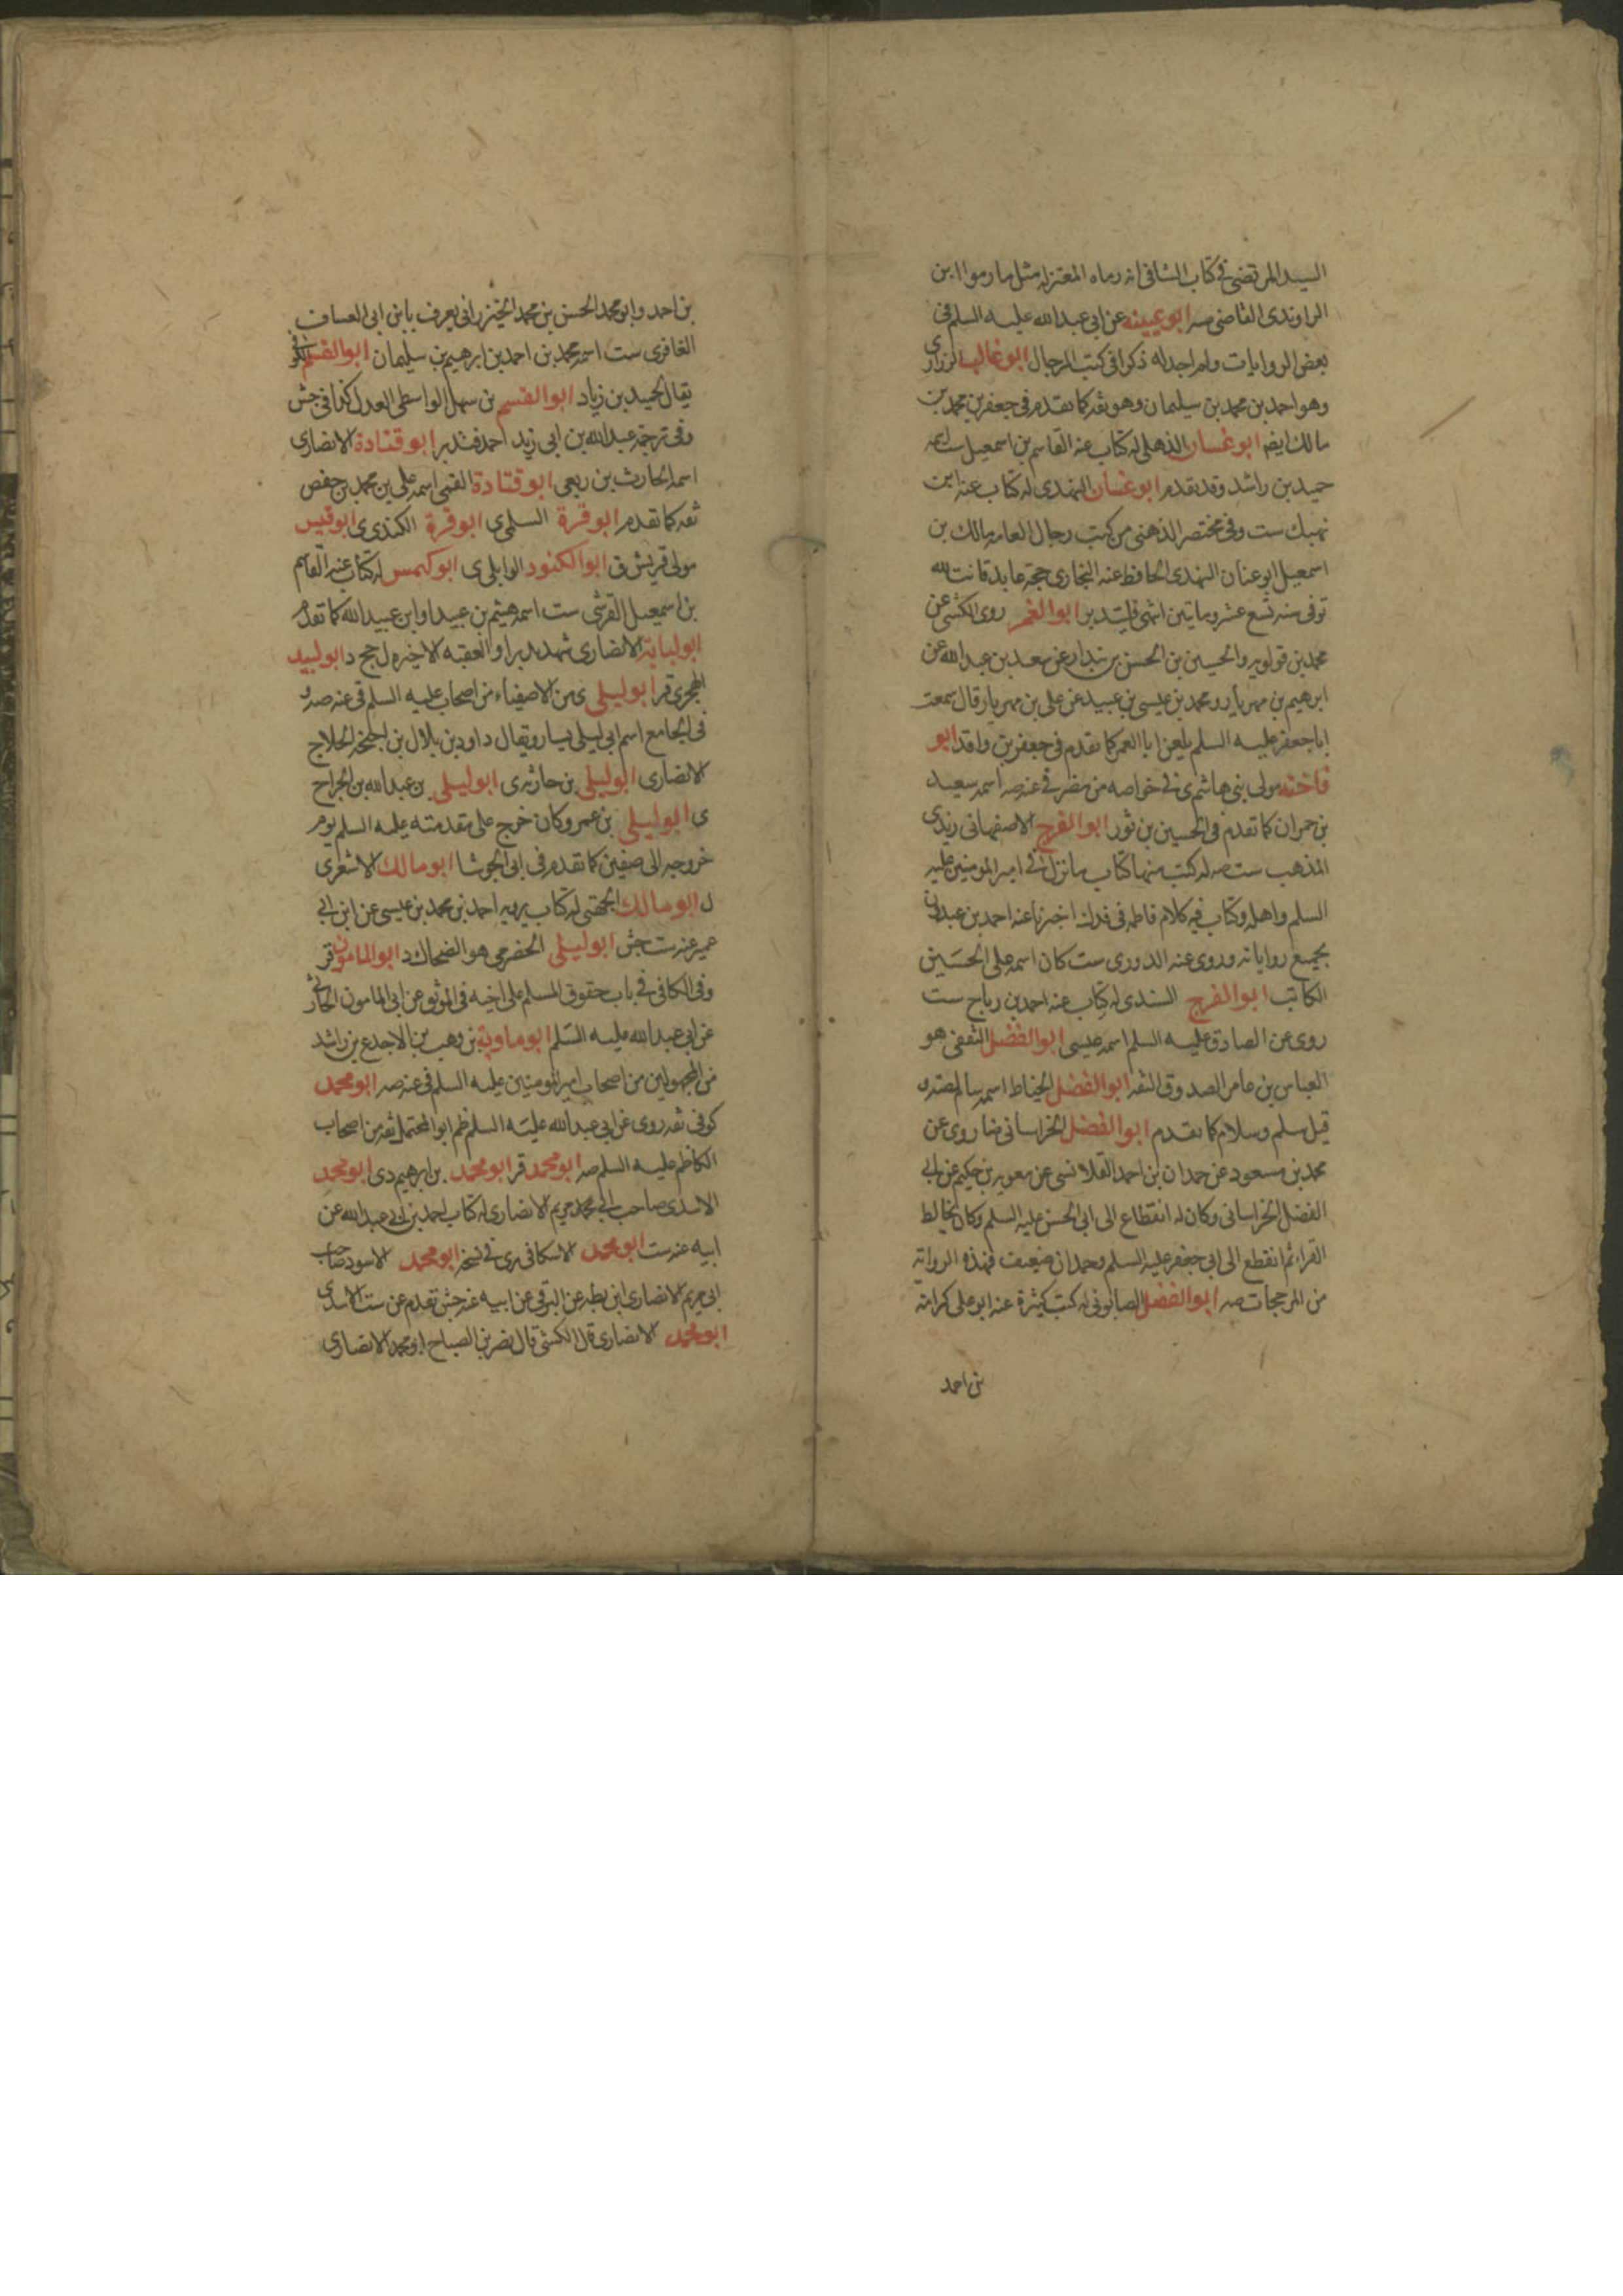 السيد المرتضى في كتاب الشافى انه رماه المعتزله مثل ما رموا ابن
الراوندى القاضى سر ابو عيينه عن ابي عبد الله عليه السلم فى
بعض الروايات ولم اجد له ذكرا فى كتب الرجال ابو غالب الزرارى
وهو احمد بن محمد بن سليمان وهو ثقه كما تقدم فى جعفر بن محمد بن
مالك ايضا ابو غسان الذهلى له كتاب عنه القاسم بن اسمعيل ست اسمه
حميد بن راشد وقد تقدم ابو غسان النهدى له كتاب عنه ابن
نهيك ست وفى مختصر الذهبى من كتب رجال العامه مالك بن
اسمعيل ابو غسان النهدى الحافظ عنه البخارى حجة عابد قانت لله
توفى سنه تسع عشر وماتين انتهى فليتدبر ابو الغمر روى الكشى عن
محمد بن قولويه والحسين بن الحسن بن بندار عن سعد بن عبد الله عن
ابرهيم بن مهزيار ومحمد بن عيسى بن عبيد عن على بن مهزيار قال سمعت
ابا جعفر عليه السلم يلعن ابا الغمر كما تقدم فى جعفر بن واقد ابو
فاخته مولى بنى هاشم ى فى خواصه من مضر فى عنه صه اسمه سعيد
بن حمران كما تقدم فى الحسين بن ثور ابو الفرج الاصفهانى زيدى
المذهب ست صه له كتب منها كتاب ما نزل فى امير المومنين عليه
السلم واهله وكتاب فيه كلام فاطمه فى فدك اخبرنا عنه احمد بن عبدون
بجميع رواياته وروى عنه الدورى ست كان اسمه على الحسين
الكاتب ابو الفرج السندى له كتاب عنه احمد بن رباح ست
روى عن الصادق عليه السلم اسمه عيسى ابو الفضل الثقفى هو
العباس بن عامر الصدوق الثقه ابو الفضل الحناط اسمه سالم صه ق
قيل سلم وسلام كما تقدم ابو الفضل الخراسانى ضا روى عن
محمد بن مسعود عن حمدان بن احمد القلانسى عن معويه بن حكيم عن ابي
الفضل الخراسانى وكان له انقطاع الى ابي الحسن عليه السلم وكان يخالط
القراء ثم انقطع الى ابي جعفر عليه السلم وحمدان ضعيف فهذه الرواية
من المرجحات صه ابو الفضل الصابونى له كتب كثيرة عنه ابو على كرامة
بن احمد
بن احمد وابو محمد الحسن بن محمد الخيزرانى يعرف بابن ابى العساف
الغافرى ست اسمه محمد بن احمد بن ابرهيم بن سليمان ابو القسم الكوفى
يقال لحميد بن زياد ابو القسم بن سهل الواسطى العدل كذا فى جش
وفى ترجمة عبد الله بن ابى زيد احمد فتدبر ابو قتادة الانصارى
اسمه الحارث بن ربعى ابو قتادة القمى اسمه على بن محمد بن حفص
ثقه كما تقدم ابو قرة السلمى ى ابو قرة الكندى ى ابو قيس
مولى قريش ق ابو الكنود الوايلى ى ابو كهمس له كتاب عنه القاسم
بن اسمعيل القرشى ست اسمه هيثم بن عبيد او ابن عبيد الله كما تقدم
ابو لبابة الانصارى شهد بدرا والعقبه الاخيره ل جخ د ابو لبيد
الهجرى قر ابو ليلى ى من الاصفياء من اصحاب عليه السلم فى عنه صه و
فى الجامع اسم ابى ليلى يسار ويقال داود بن بلال بن احيحه الحلاج
الانصارى ابو ليلى بن حارثه ى ابو ليلى بن عبد الله بن الجراح
ى ابو ليلى بن عمرو كان خرج على مقدمته عليه السلم يوم
خروجه الى صفين كما تقدم فى ابى الجوشا ابو مالك الاشعرى
ل ابو مالك الجهنى له كتاب يرويه احمد بن محمد بن عيسى عن ابن ابي
عمير عنه ست جش ابو ليلى الحضرمى هو الضحاك د ابو المامون قر
وفى الكافى فى باب حقوق المسلم على اخيه فى الموثق عن ابى المامون الحارثى
عن ابى عبد الله عليه السلم ابو ماوية بن وهب بن الاجدع بن راشد
من المجهولين من اصحاب امير المومنين عليه السلم فى عنه صه ابو محمد
كوفى ثقه روى عن ابى عبد الله عليه السلم ظم ابو المحتمل ثقه من اصحاب
الكاظم عليه السلم صه ابو محمد قر ابو محمد بن ابرهيم دى ابو محمد
الاسدى صاحب ابى محمد مريم الانصارى له كتاب احمد بن ابى عبد الله عن
ابيه عنه ست ابو محمد الاسكافى رى فى نسخه ابو محمد الاسود صاحب
ابى مريم الانصارى ابن بطه عن البرقى عن ابيه عنه جش تقدم عن ست الاسدى
ابو محمد الانصارى قال الكشى قال نصر بن الصباح ابو محمد الانصارى